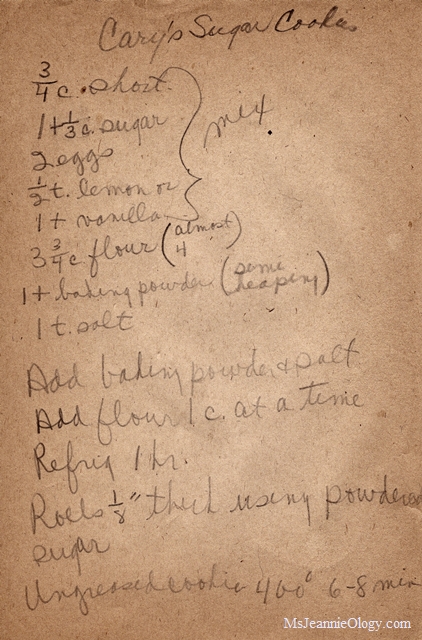 Cary's Sugar Cookies
3/4 c. short.
1 + 1/3 c. sugar
2 eggs
1/2 t. lemon or
1 t vanilla
mix
3 3/4 c. flour (almost 4)
1 t baking powder (some heaping)
1 t. salt
Add baking powder & salt
Add flour 1 c. at a time
Refrig 1 hr.
Rolls 1/8" thick using powdered
sugar
Ungreased cookie 400° 6-8 min
MsJeannieOlogy.com